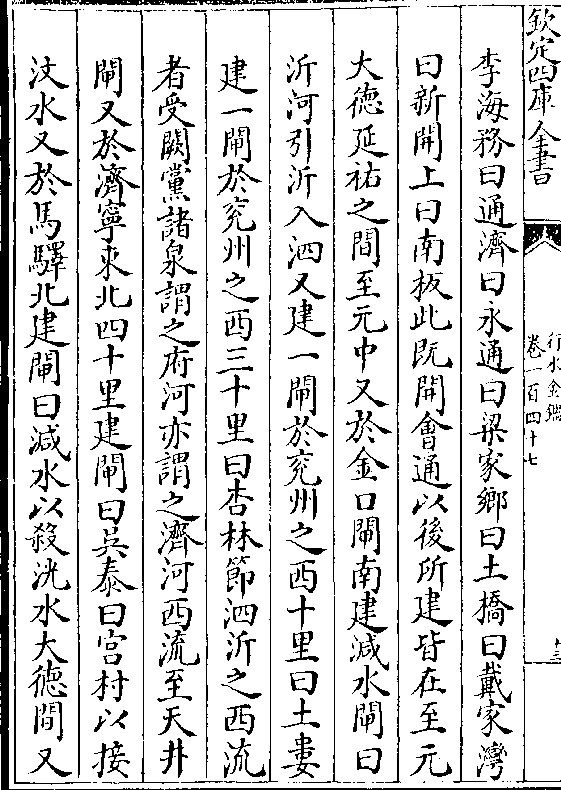 欽定四庫全書
行水金鑑
卷一百四十七
李海務曰通濟曰永通曰梁家鄉曰土橋曰戴家灣
曰新開上曰南板此既開會通以後所建皆在至元
大德延祐之間至元中又於金口閘南建減水閘曰
沂河引沂入泗又建一閘於兖州之西十里曰土婁
建一閘於兖州之西三十里曰杏林節泗沂之西流
者受闕黨諸泉謂之府河亦謂之濟河西流至天井
閘又於濟寧東北四十里建閘曰吳泰曰宫村以接
汶水又於馬驛北建閘曰減水以殺洸水大德間又